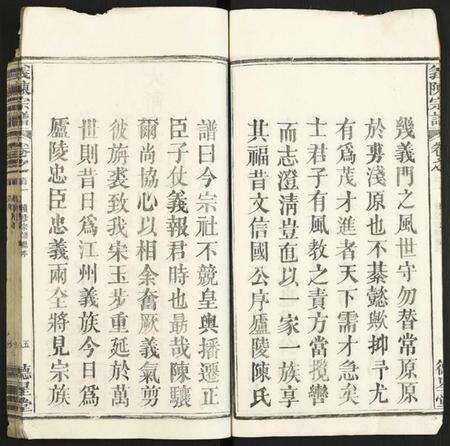 義陳宗譜
卷之
德星堂
幾義門之風世守勿替常原原
於勇淺原也不綦懿歟抑予尤
有爲茂才進者天下需才急矣
士君子有風教之責方當攬轡
而志澄清豈也以一家一族享
其福昔文信國公序廬陵陳氏
譜曰今宗社不競皇輿播遷正
臣子仗義報君時也勗哉陳驤
爾尚協心以相余奮厥義氣剪
彼旃裘致我宋玉步重延於萬
世則昔日爲江州義族今日爲
廬陵忠臣忠義兩全將見宗族
義陳宗譜
卷之
五
德星堂